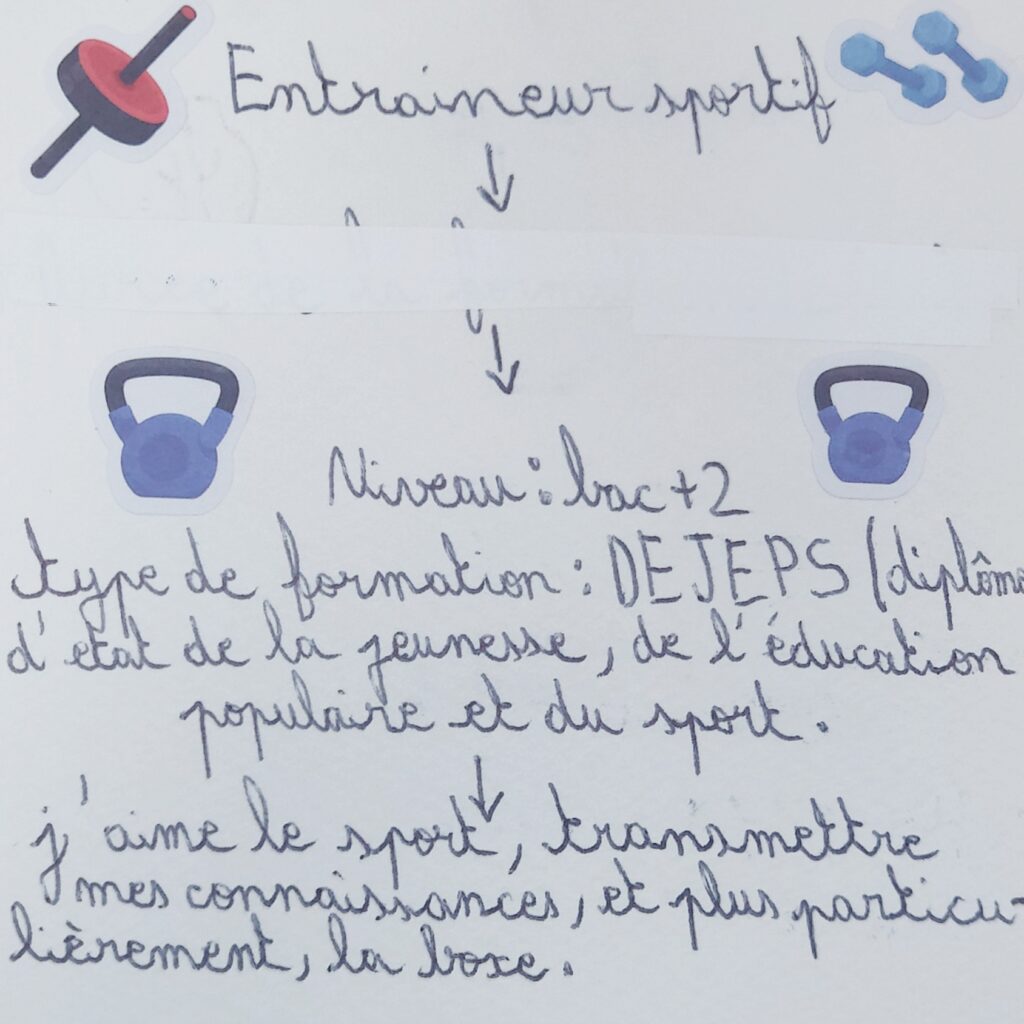 Entraineur sportif
Niveau : bac +2
type de formation : DEJEPS (diplôme
d'état de la jeunesse, de l'éducation
populaire et du sport.
j'aime le sport, transmettre
mes connaissances, et plus particu-
lièrement, la boxe.